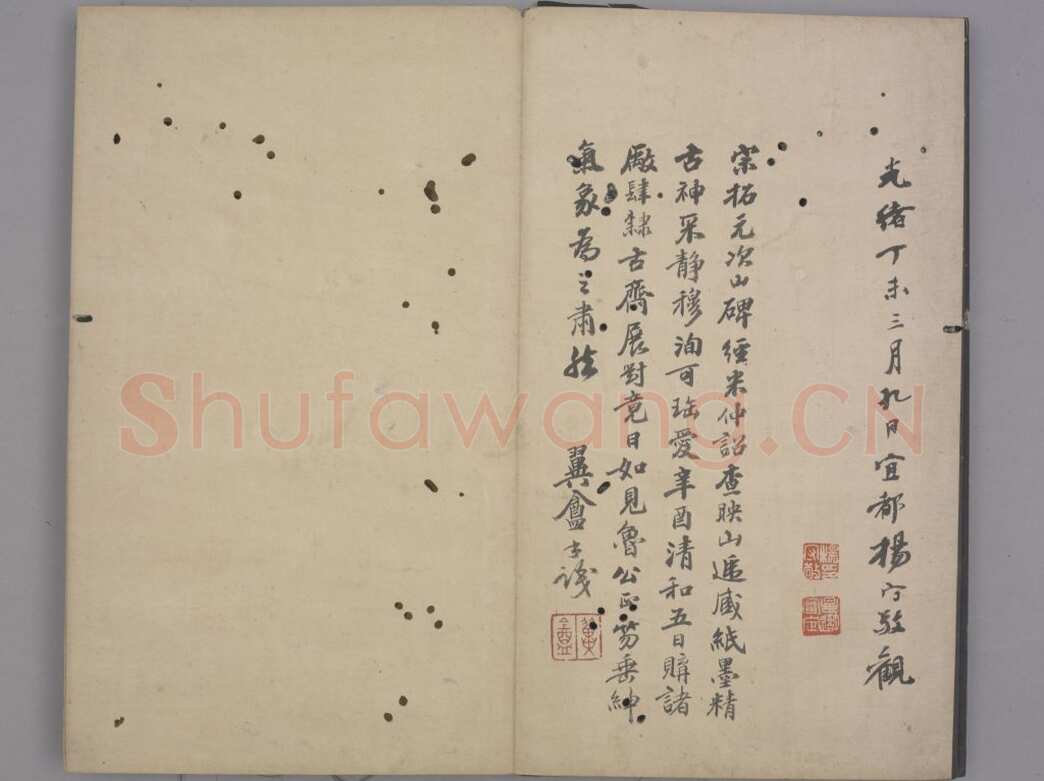 光緒丁未三月九日宜都楊守敬觀
宋拓元次山碑經米仲詔查映山遞藏紙墨精
古神采靜穆洵可珎愛辛酉清和五日購諸
廠肆隸古齋展對竟日如見魯公正笏垂紳
氣象為之肅然
翼盦識
Shufawang.CN